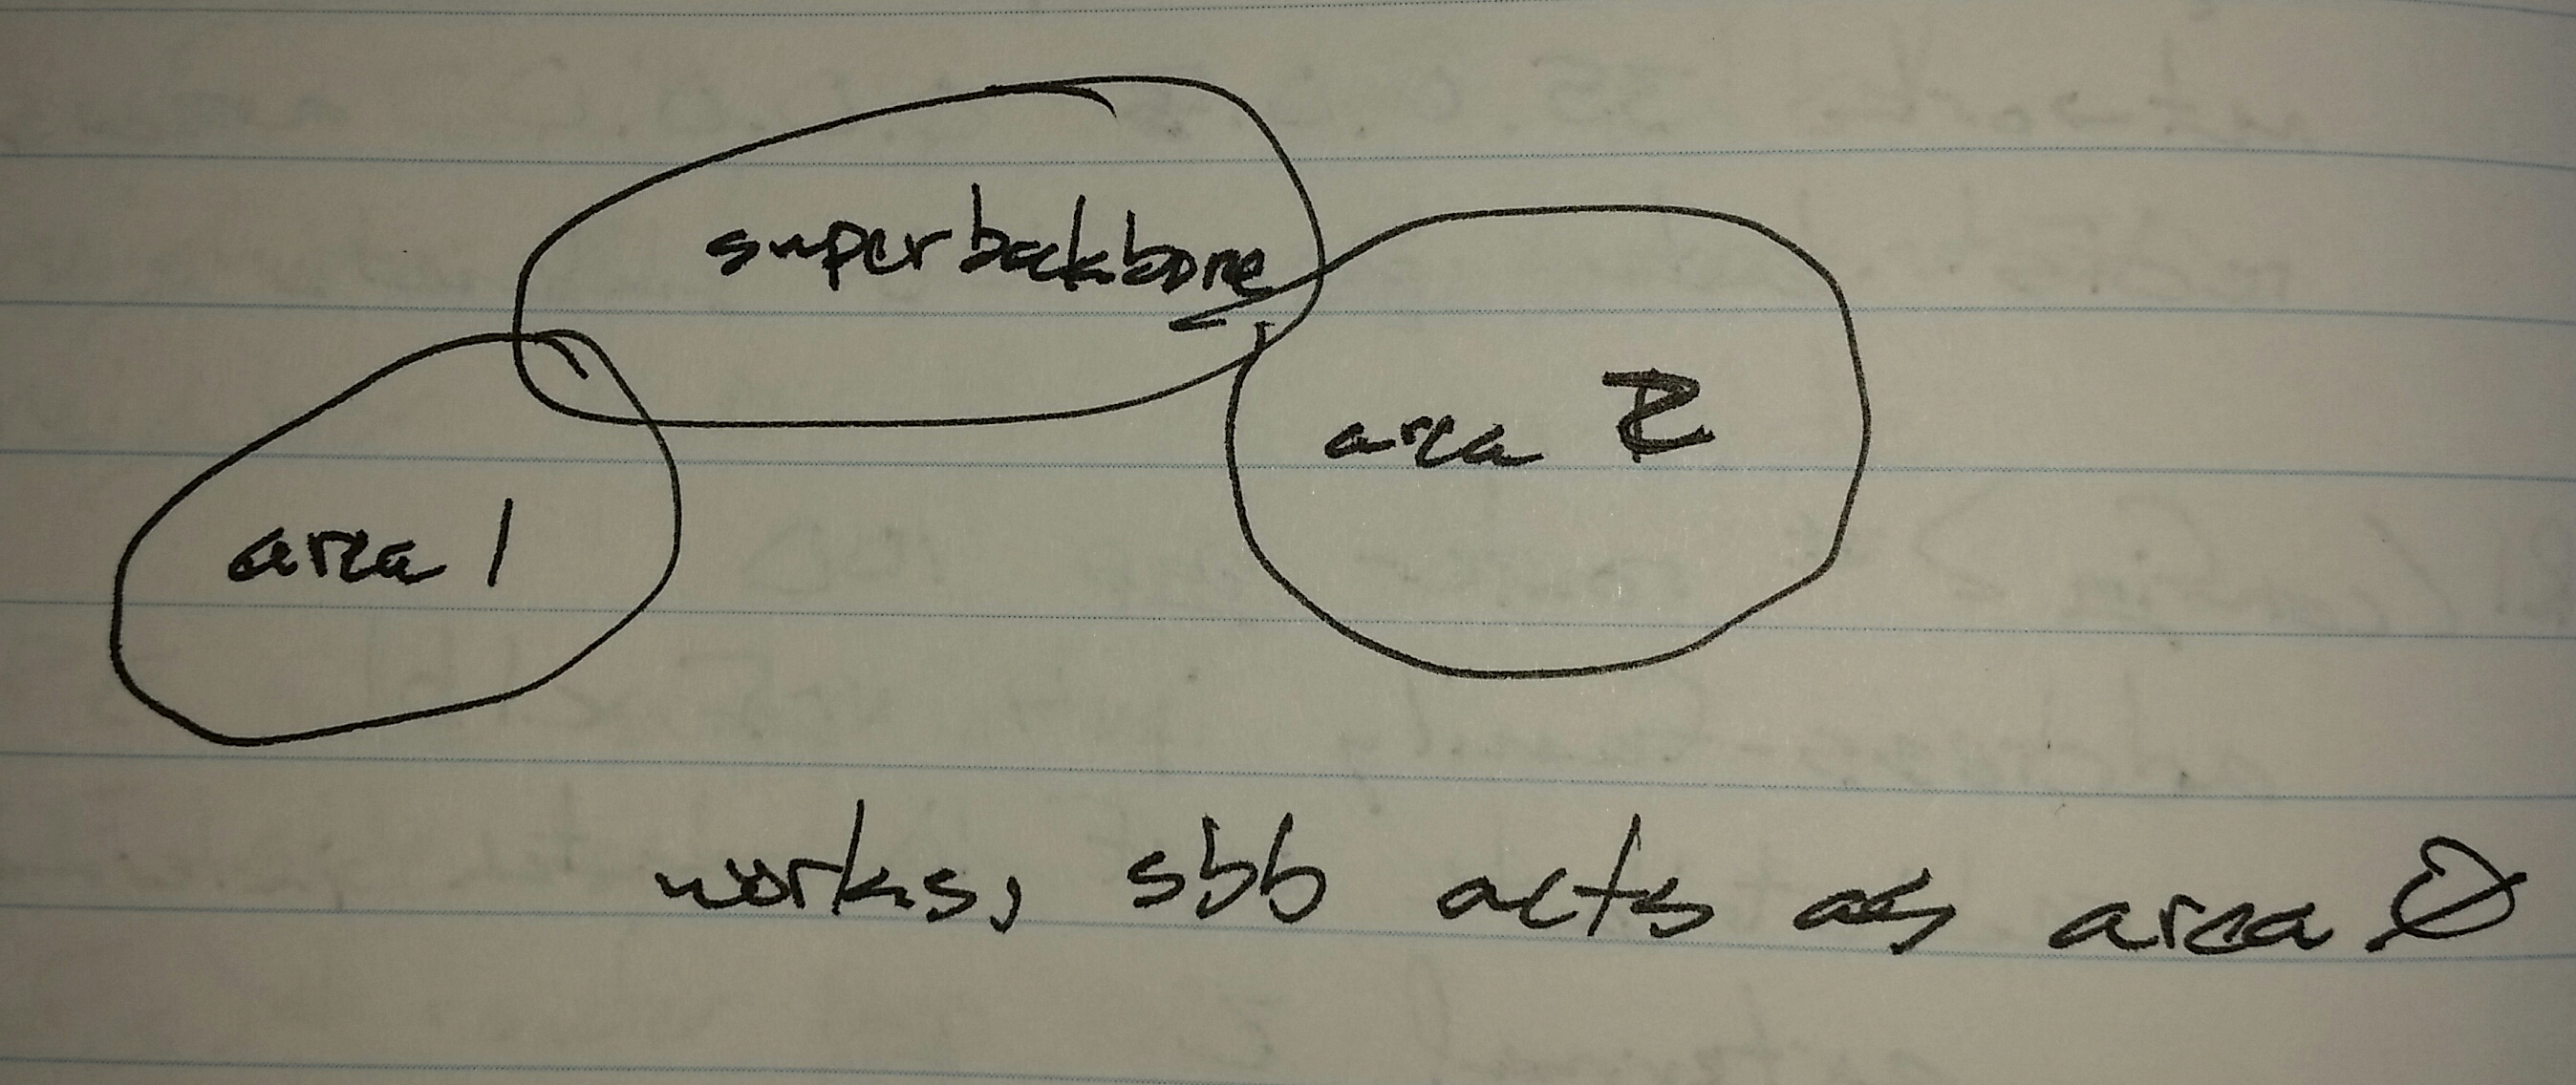 superbackbone
area 2
area 1
works, sbb acts as area 0